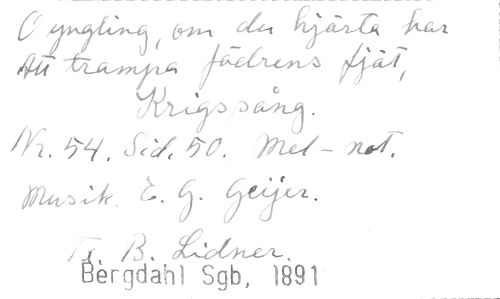 O yngling, om du hjärta har
Att trampa fädrens fjät,
Krigssång.
Nr. 54. Sid. 50. Mel-not.
Musik. E. G. Geijer.
T. B. Lidner.
Bergdahl Sgb, 1891